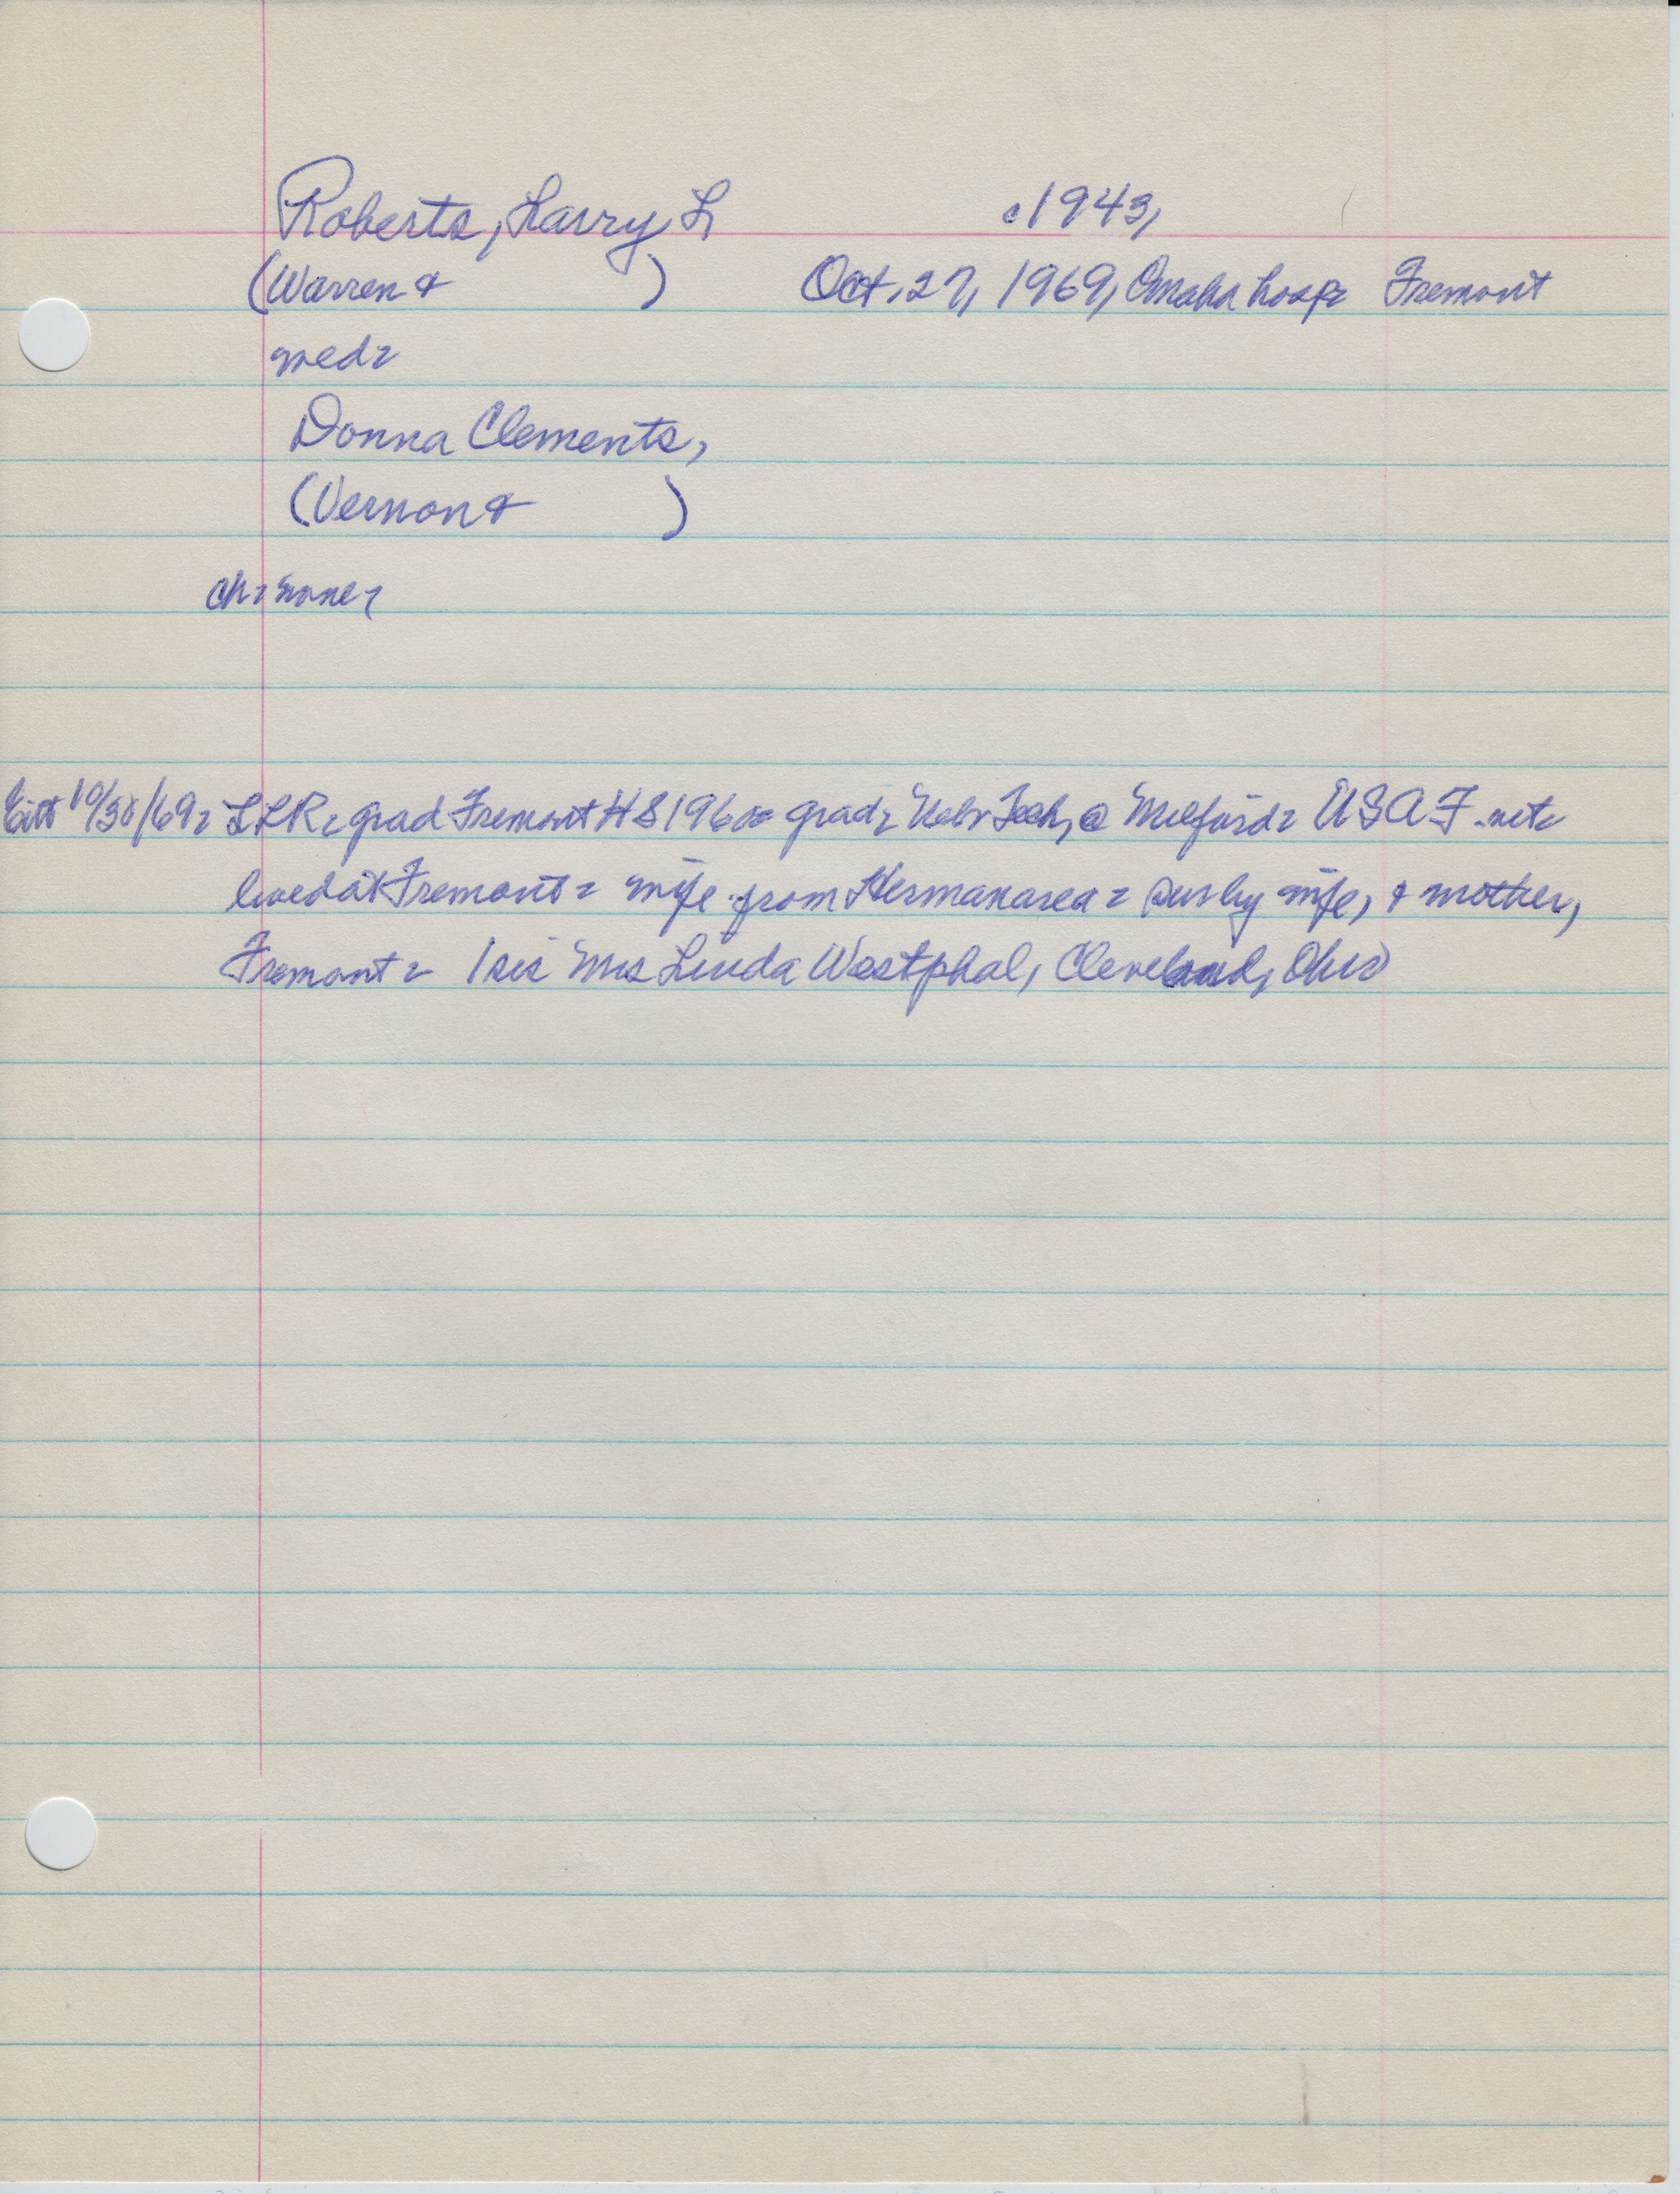 Roberts, Larry L c1943,
(Warren & ) Oct. 27, 1969, Omaha hosp= Fremont
med=
Donna Clements,
(Vernon & )
ch= none=
10/30/69= LLR= grad Fremont HS 1960= grad= Nebr Tech, @ Milford= USAF.
lived at Fremont= wife from Herman area= sur by wife, & mother,
Fremont= 1 sis Mrs Linda Westphal, Cleveland, Ohio